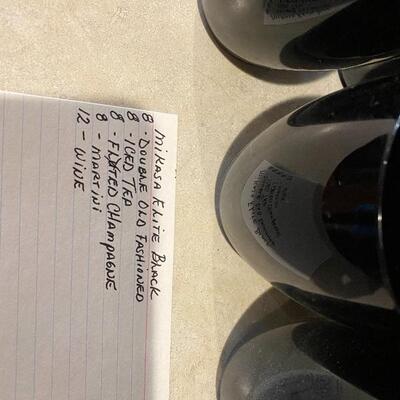 MIKASA ELITE BLACK
8 - DOUBLE OLD FASHIONED
8 - ICED TEA
8 - FLUTED CHAMPAGNE
8 - MARTINI
12 - WINE